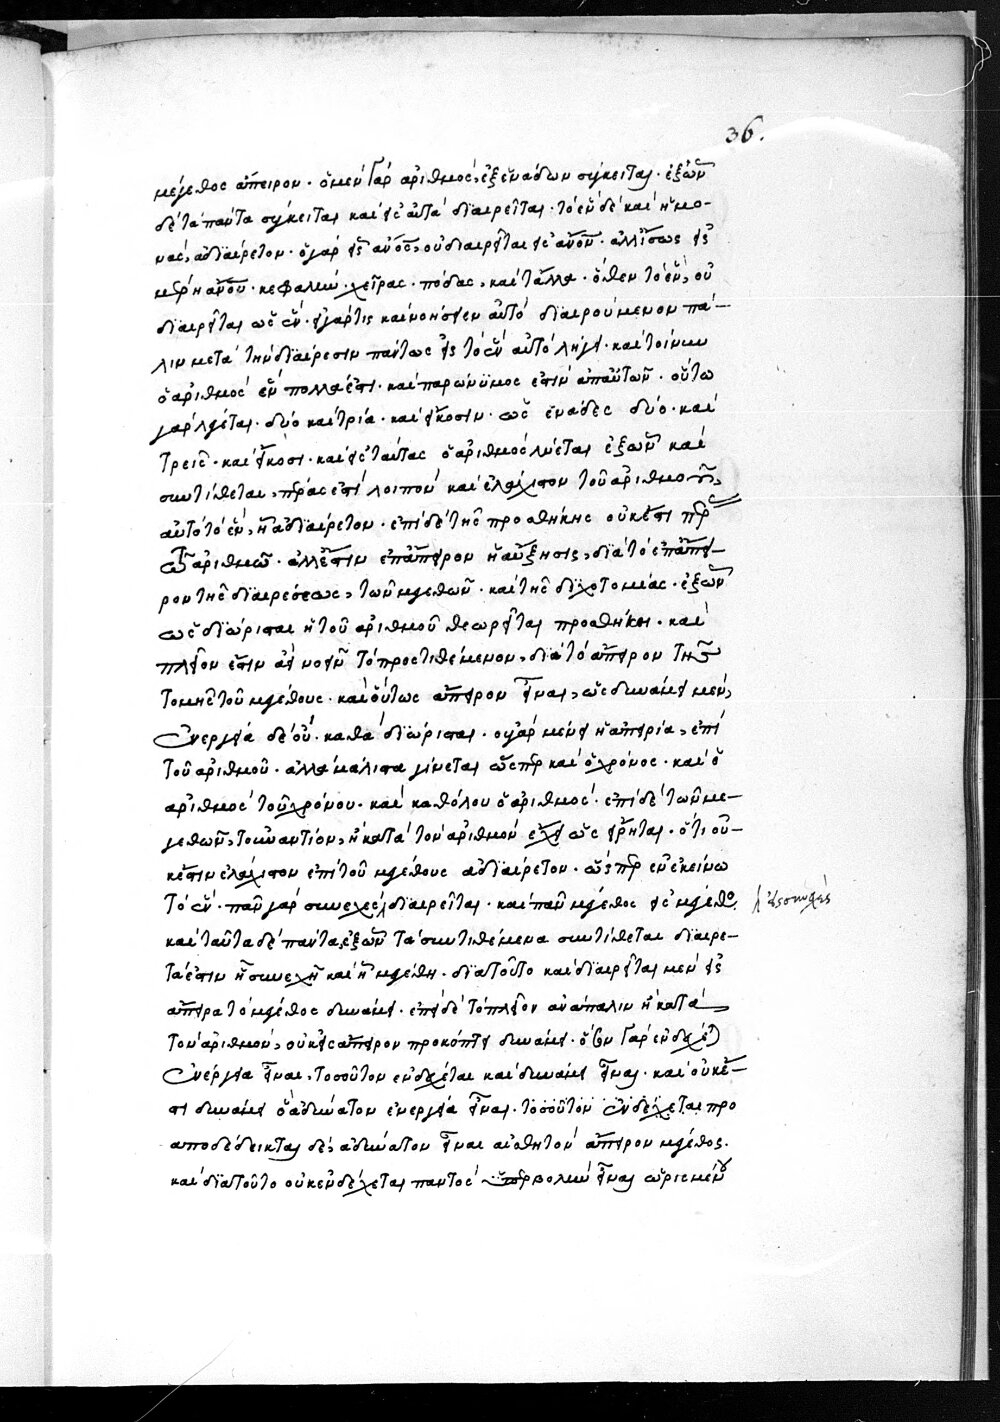 36.
μέγεθος ἄπειρον · ὁ μὲν γὰρ ἀριθμὸς, ἐξ ἑνάδων σύγκειται · ἐξ ὧν
δὲ τὰ πάντα σύγκειται καὶ εἰς αὐτὰ διαιρεῖται · τὸ ἓν δὲ καὶ ἡ μο-
νὰς, ἀδιαίρετον · ὁ γὰρ εἷς ἄνος, οὐ διαιρεῖται εἰς ἄνον · ἀλλ' ἴσως εἰς
μέρη ἄνου · κεφαλὴν · χεῖρας · πόδας, καὶ τἆλλα · ὅθεν τὸ ἓν, οὐ
διαιρεῖται ὡς ἕν · εἰ γάρ τις καὶ νοήσειεν αὐτὸ διαιρούμενον πά-
λιν μετὰ τὴν διαίρεσιν πάντως εἰς τὸ ἓν αὐτὸ λήγει · καὶ τοίνυν
ὁ ἀριθμὸς ἓν πολλά ἐστι · καὶ παρώνυμός ἐστιν ἀπ' αὐτῶν · οὕτω
γὰρ λέγεται · δύο καὶ τρία · καὶ εἴκοσιν · ὡς ἑνάδες δύο · καὶ
τρεῖς · καὶ εἴκοσι · καὶ εἰς ταύτας ὁ ἀριθμὸς λύεται ἐξ ὧν καὶ
συντίθεται, πέρας ἐστὶ λοιπὸν καὶ ἐλάχιστον τοῦ ἀριθμοῦ,
αὐτὸ τὸ ἓν, ᾗ ἀδιαίρετον · ἐπὶ δὲ τῆς προσθήκης οὐκ ἔστι πέρας
τῶ ἀριθμῶ · ἀλλ' ἔστιν ἐπ' ἄπειρον ἡ αὔξησις, διὰ τὸ ἐπ' ἄπει-
ρον τῆς διαιρέσεως, τῶν μεγεθῶν · καὶ τῆς διχοτομίας · ἐξ ὧν
ὡς διώρισται ἡ τοῦ ἀριθμοῦ θεωρεῖται προσθήκη · καὶ
πλεῖον ἔστιν ἀεὶ νοεῖν τὸ προστιθέμενον, διὰ τὸ ἄπειρον τῆς
τομῆς τοῦ μεγέθους · καὶ οὕτως ἄπειρον εἶναι, ὡς δυνάμει μὲν,
ἐνεργεία δὲ οὔ · καθὰ διώρισται · οὐ γὰρ μένει ἡ ἀπειρία, ἐπὶ
τοῦ ἀριθμοῦ · ἀλλὰ μάλιστα γίνεται ὥσπερ καὶ ὁ χρόνος · καὶ ὁ
ἀριθμὸς τοῦ χρόνου · καὶ καθόλου ὁ ἀριθμός · ἐπὶ δὲ τῶν με-
γεθῶν, τοὐναντίον, ἢ κατὰ τὸν ἀριθμὸν ἔχει ὡς εἴρηται · ὅτι οὐ-
κ ἔστιν ἐλάχιστον ἐπὶ τοῦ μεγέθους ἀδιαίρετον · ὥσπερ ἐν ἐκείνω
τὸ ἕν · πᾶν γὰρ συνεχὲς διαιρεῖται · καὶ πᾶν μέγεθος εἰς μεγέθη.
εἰς συνεχὲς
καὶ ταῦτα δὲ πάντα, ἐξ ὧν τὰ συντιθέμενα συντίθεται διαιρε-
τά ἐστιν ᾗ συνεχῆ καὶ ᾗ μεγέθη · διὰ τοῦτο καὶ διαιρεῖται μὲν εἰς
ἄπειρα τὸ μέγεθος δυνάμει · ἐπὶ δὲ τὸ πλεῖον ἀνάπαλιν ἢ κατὰ
τὸν ἀριθμὸν, οὐκ εἰς ἄπειρον προκόπτει δυνάμει · ὅσον γὰρ ἐνδέχεται
ἐνεργεία εἶναι, τοσοῦτον ἐνδέχεται καὶ δυνάμει εἶναι · καὶ οὐκ ἔ-
στι δυνάμει ὃ ἀδύνατον ἐνεργεία εἶναι · τοσοῦτον ἐνδέχεται προ
αποδέδεικται δὲ, ἀδύνατον εἶναι αἰσθητὸν ἄπειρον μέγεθος.
καὶ διὰ τοῦτο οὐκ ἐνδέχεται παντὸς ὑπερβολὴν εἶναι ὡρισμένου